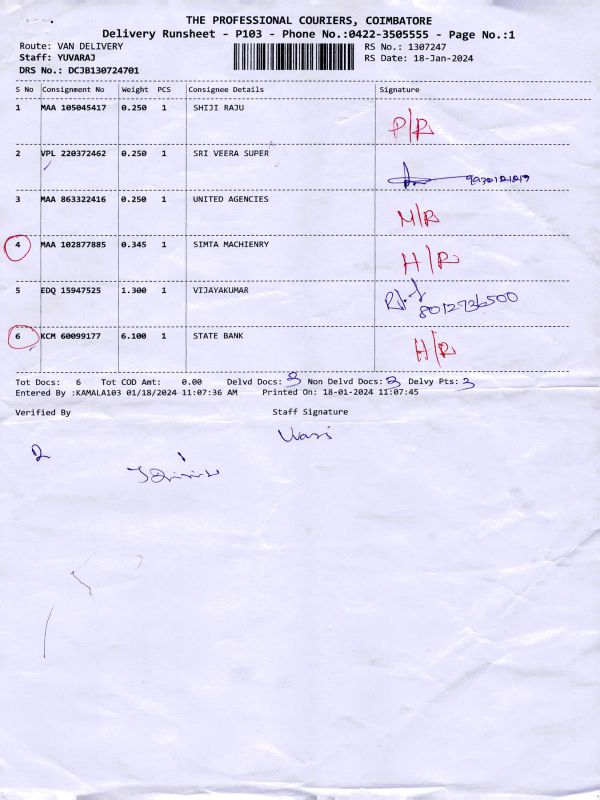 THE PROFESSIONAL COURIERS, COIMBATORE
Delivery Runsheet - P103 - Phone No.:0422-3505555 - Page No.:1
Route: VAN DELIVERY RS No.: 1307247
Staff: YUVARAJ RS Date: 18-Jan-2024
DRS No.: DCJB130724701
S No Consignment No Weight PCS Consignee Details Signature
1 MAA 105045417 0.250 1 SHIJI RAJU P/R
2 VPL 220372462 0.250 1 SRI VEERA SUPER
3 MAA 863322416 0.250 1 UNITED AGENCIES N/R
4 MAA 102877885 0.345 1 SIMTA MACHIENRY H/R
5 EDQ 15947525 1.300 1 VIJAYAKUMAR 8012736500
6 KCM 60099177 6.100 1 STATE BANK H/R
Tot Docs: 6 Tot COD Amt: 0.00 Delvd Docs: 3 Non Delvd Docs: 3 Delvy Pts: 3
Entered By :KAMALA103 01/18/2024 11:07:36 AM Printed On: 18-01-2024 11:07:45
Verified By Staff Signature